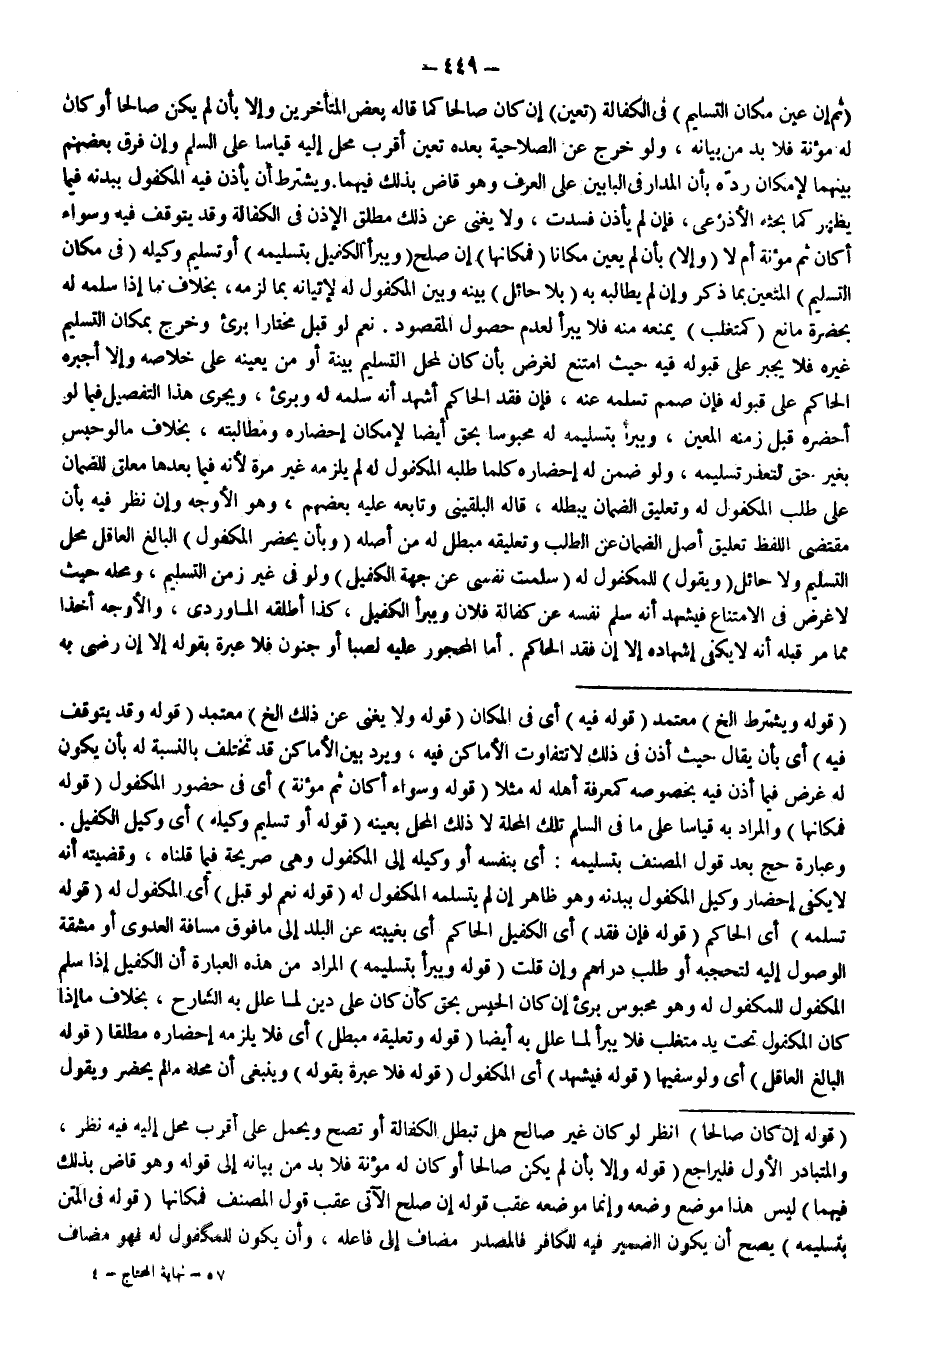 - ٤٤٩ -
(ثم إن عين مكان التسليم) فى الكفالة (تعين) إن كان صالحا كما قاله بعض المتأخرين وإلا بأن لم يكن صالحا أو كان
له مؤنة فلا بد من بيانه ، ولو خرج عن الصلاحية بعده تعين أقرب محل إليه قياسا على السلم وإن فرق بعضهم
بينهما لإمكان ردّه بأن المدار فى البابين على العرف وهو قاض بذلك فيهما. ويشترط أن يأذن فيه المكفول ببدنه فيما
يظهر كما بحثه الأذرعى ، فإن لم يأذن فسدت ، ولا يغنى عن ذلك مطلق الإذن فى الكفالة وقد يتوقف فيه وسواء
أكان ثم مؤنة أم لا (وإلا) بأن لم يعين مكانا (فمكانها) إن صلح (ويبرأ الكفيل بتسليمه) أو تسليم وكيله (فى مكان
التسليم) المتعين بما ذكر وإن لم يطالبه به (بلا حائل) بينه وبين المكفول له لإتيانه بما لزمه، بخلاف ما إذا سلمه له
بحضرة مانع (كمتغلب) يمنعه منه فلا يبرأ لعدم حصول المقصود . نعم لو قبل مختارا برئ وخرج بمكان التسليم
غيره فلا يجبر على قبوله فيه حيث امتنع لغرض بأن كان لمحل التسليم بينة أو من يعينه على خلاصه وإلا أجبره
الحاكم على قبوله فإن صمم تسلمه عنه ، فإن فقد الحاكم أشهد أنه سلمه له وبرئ ، ويجرى هذا التفصيل فيما لو
أحضره قبل زمنه المعين ، ويبرأ بتسليمه له محبوسا بحق أيضا لإمكان إحضاره ومطالبته ، بخلاف مالوحبس
بغير حق لتعذر تسليمه ، ولو ضمن له إحضاره كلما طلبه المكفول له لم يلزمه غير مرة لأنه فيما بعدها معلق للضمان
على طلب المكفول له وتعليق الضمان يبطله ، قاله البلقينى وتابعه عليه بعضهم ، وهو الأوجه وإن نظر فيه بأن
مقتضى اللفظ تعليق أصل الضمان عن الطلب وتعليقه مبطل له من أصله (وبأن يحضر المكفول) البالغ العاقل محل
التسليم ولا حائل (ويقول) للمكفول له (سلمت نفسى عن جهة الكفيل) ولو فى غير زمن التسليم ، ومحله حيث
لاغرض فى الامتناع فيشهد أنه سلم نفسه عن كفالة فلان ويبرأ الكفيل ، كذا أطلقه الماوردى ، والأوجه أخذا
مما مر قبله أنه لايكفى إشهاده إلا إن فقد الحاكم . أما المحجور عليه لصبا أو جنون فلا عبرة بقوله إلا إن رضى به
(قوله ويشترط الخ) معتمد (قوله فيه) أى فى المكان (قوله ولا يغنى عن ذلك الخ) معتمد (قوله وقد يتوقف
فيه) أى بأن يقال حيث أذن فى ذلك لاتتفاوت الأماكن فيه ، ويرد بين الأماكن قد تختلف بالنسبة له بأن يكون
له غرض فيما أذن فيه بخصوصه كمعرفة أهله له مثلا (قوله وسواء أكان ثم مؤنة) أى فى حضور المكفول (قوله
فمكانها) والمراد به قياسا على ما فى السلم تلك المحلة لا ذلك المحل بعينه (قوله أو تسليم وكيله) أى وكيل الكفيل .
وعبارة حج بعد قول المصنف بتسليمه : أى بنفسه أو وكيله إلى المكفول وهى صريحة فيما قلناه ، وقضيته أنه
لايكفى إحضار وكيل المكفول ببدنه وهو ظاهر إن لم يتسلمه المكفول له (قوله نعم لو قبل) أى المكفول له (قوله
تسلمه) أى الحاكم (قوله فإن فقد) أى الكفيل الحاكم أى بغيبته عن البلد إلى مافوق مسافة العدوى أو مشقة
الوصول إليه لتحجبه أو طلب دراهم وإن قلت (قوله ويبرأ بتسليمه) المراد من هذه العبارة أن الكفيل إذا سلم
المكفول للمكفول له وهو محبوس برئ إن كان الحبس بحق كأن كان على دين لما علل به الشارح ، بخلاف ماإذا
كان المكفول تحت يد متغلب فلا يبرأ لما علل به أيضا (قوله وتعليقه مبطل) أى فلا يلزمه إحضاره مطلقا (قوله
البالغ العاقل) أى ولوسفيها (قوله فيشهد) أى المكفول (قوله فلا عبرة بقوله) وينبغى أن محله مالم يحضر ويقول
(قوله إن كان صالحا) انظر لو كان غير صالح هل تبطل الكفالة أو تصح ويحمل على أقرب محل إليه فيه نظر ،
والمتبادر الأول فليراجع (قوله وإلا بأن لم يكن صالحا أو كان له مؤنة فلا بد من بيانه إلى قوله وهو قاض بذلك
فيهما) ليس هذا موضع وضعه وإنما موضعه عقب قوله إن صلح الآتى عقب قول المصنف فمكانها (قوله فى المتن
بتسليمه) يصح أن يكون الضمير فيه للكافر فالمصدر مضاف إلى فاعله ، وأن يكون للمكفول له فهو مضاف
٥٧ - نهاية المحتاج - ٤